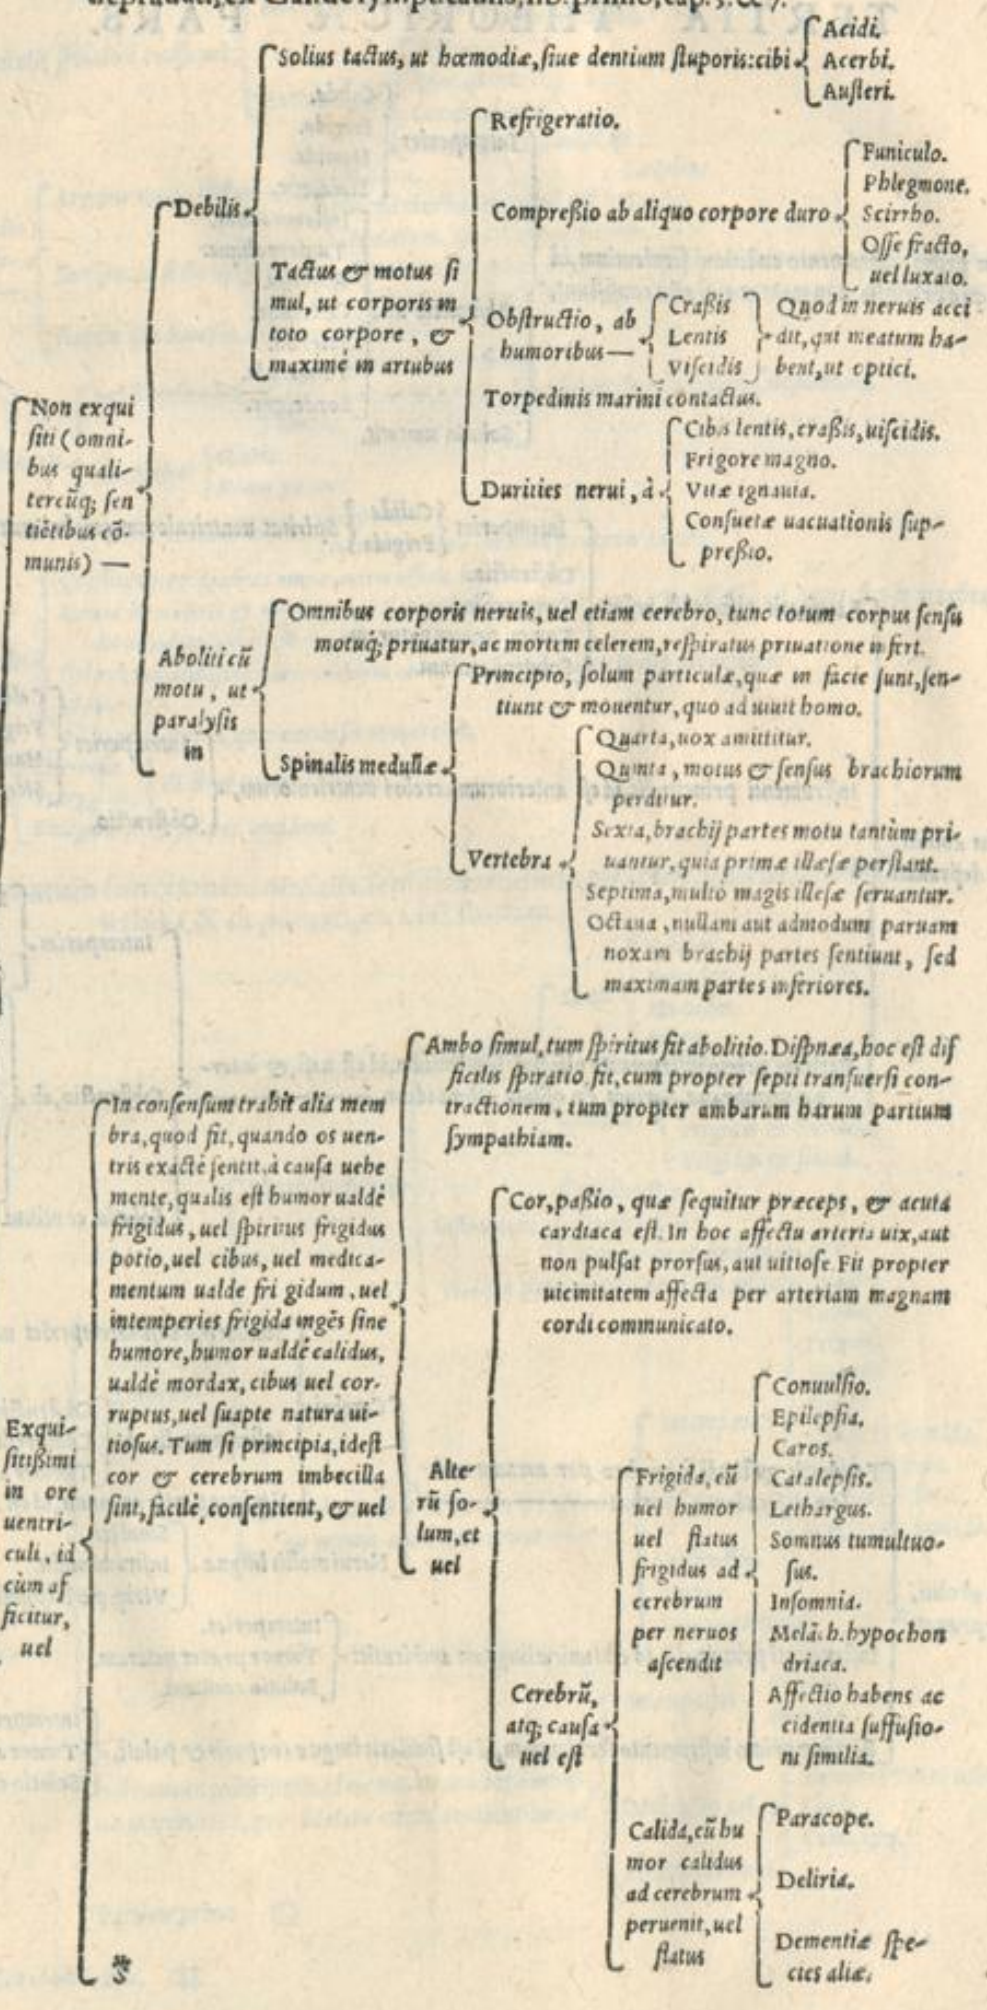 Solius tactus, ut hœmodiæ, siue dentium stuporis: cibi
Acidi.
Acerbi.
Austeri.
Debilis
Tactus & motus si
mul, ut corporis in
toto corpore, &
maximè in artubus
Refrigeratio.
Compreßio ab aliquo corpore duro
Funiculo.
Phlegmone.
Scirrho.
Osse fracto,
uel luxato.
Obstructio, ab
humoribus —
Craßis
Lentis
Viscidis
Quod in neruis acci
dit, qui meatum ha-
bent, ut optici.
Torpedinis marini contactus.
Durities nerui, à
Cibis lentis, craßis, uiscidis.
Frigore magno.
Vitæ ignauia.
Consuetæ uacuationis sup-
preßio.
Non exqui
siti (omni-
bus quali-
tercūq; sen
tiētibus cō-
munis) —
Aboliti cū
motu, ut
paralysis
in
Omnibus corporis neruis, uel etiam cerebro, tunc totum corpus sensu
motuq́; priuatur, ac mortem celerem, respiratus priuatione infert.
Spinalis medullæ
Principio, solum particulæ, quæ in facie sunt, sen-
tiunt & mouentur, quo ad uiuit homo.
Vertebra
Quarta, uox amittitur.
Quinta, motus & sensus brachiorum
perditur.
Sexta, brachij partes motu tantùm pri-
uantur, quia primæ illæsæ perstant.
Septima, multò magis illesæ seruantur.
Octaua, nullam aut admodum paruam
noxam brachij partes sentiunt, sed
maximam partes inferiores.
Exqui-
sitißimi
in ore
uentri-
culi, id
cùm af
ficitur,
uel
In consensum trahit alia mem
bra, quod fit, quando os uen-
tris exactè sentit, à causa uehe
mente, qualis est humor ualdè
frigidus, uel spiritus frigidus
potio, uel cibus, uel medica-
mentum ualde fri gidum, uel
intemperies frigida ingēs sine
humore, humor ualdè calidus,
ualdè mordax, cibus uel cor-
ruptus, uel suapte natura ui-
tiosus. Tum si principia, idest
cor & cerebrum imbecilla
sint, facilè consentient, & uel
Ambo simul, tum spiritus fit abolitio. Dispnæa, hoc est dif
ficilis spiratio fit, cum propter septi transuersi con-
tractionem, tum propter ambarum harum partium
sympathiam.
Alte-
rū so-
lum, et
uel
Cor, paßio, quæ sequitur præceps, & acuta
cardiaca est. In hoc affectu arteria uix, aut
non pulsat prorsus, aut uitiose. Fit propter
uicinitatem affecta per arteriam magnam
cordi communicato.
Cerebrū,
atq; causa
uel est
Frigida, cū
uel humor
uel flatus
frigidus ad
cerebrum
per neruos
ascendit
Conuulsio.
Epilepsia.
Caros.
Catalepsis.
Lethargus.
Somnus tumultuo-
sus.
Insomnia.
Melāch. hypochon
driaca.
Affectio habens ac
cidentia suffusio-
ni similia.
Calida, cū hu
mor calidus
ad cerebrum
peruenit, uel
flatus
Paracope.
Deliria.
Dementiæ spe-
cies aliæ.